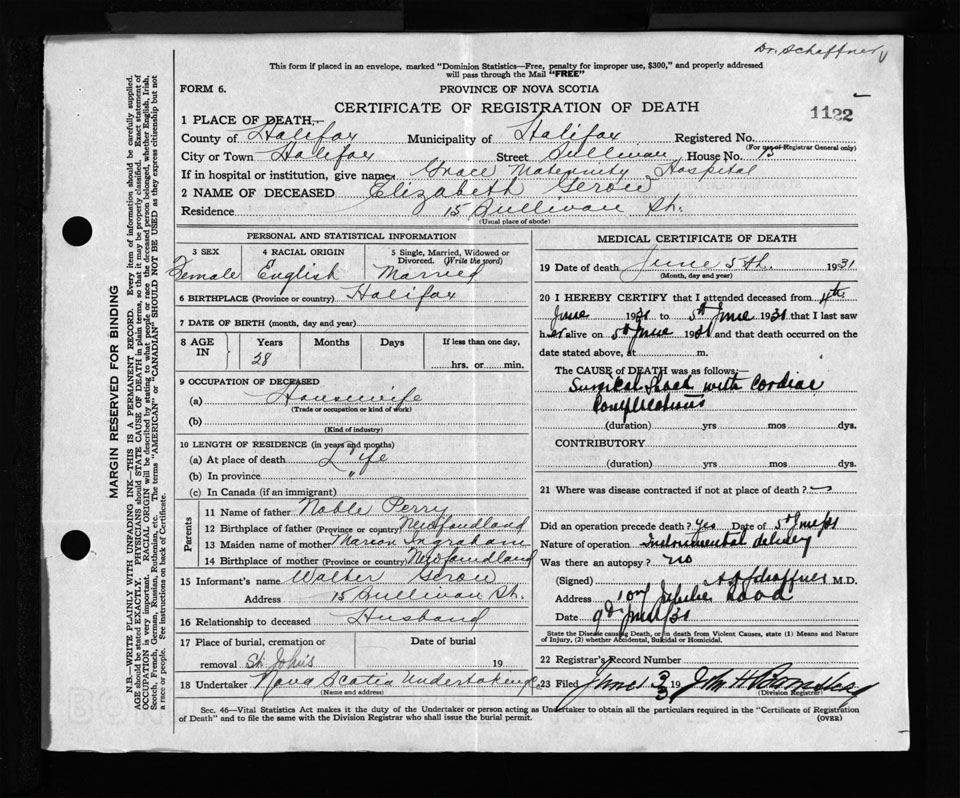 Dr. Schaffner
This form if placed in an envelope, marked "Dominion Statistics—Free, penalty for improper use, $300," and properly addressed
will pass through the Mail "FREE"
FORM 6.
PROVINCE OF NOVA SCOTIA
CERTIFICATE OF REGISTRATION OF DEATH
1122
1 PLACE OF DEATH—
County of Halifax Municipality of Halifax Registered No.
(For use of Registrar General only)
City or Town Halifax Street Sullivan House No. 15
If in hospital or institution, give name Grace Maternity Hospital
2 NAME OF DECEASED Elizabeth Gerow
Residence 15 Sullivan St.
(Usual place of abode)
PERSONAL AND STATISTICAL INFORMATION
3 SEX 4 RACIAL ORIGIN 5 Single, Married, Widowed or Divorced. (Write the word)
Female English Married
6 BIRTHPLACE (Province or country) Halifax
7 DATE OF BIRTH (month, day and year)
8 AGE IN Years Months Days If less than one day,
28 hrs. or min.
9 OCCUPATION OF DECEASED
(a) Housewife
(Trade or occupation or kind of work)
(b)
(Kind of industry)
10 LENGTH OF RESIDENCE (in years and months)
(a) At place of death Life
(b) In province "
(c) In Canada (if an immigrant)
Parents
11 Name of father Noble Perry
12 Birthplace of father (Province or country) Newfoundland
13 Maiden name of mother Marion Ingraham
14 Birthplace of mother (Province or country) Newfoundland
15 Informant's name Walter Gerow
Address 15 Sullivan St.
16 Relationship to deceased Husband
17 Place of burial, cremation or Date of burial
removal St. John's 19
18 Undertaker Nova Scotia Undertaking
MEDICAL CERTIFICATE OF DEATH
19 Date of death June 5th. 1931
(Month, day and year)
20 I HEREBY CERTIFY that I attended deceased from 4th
June 1931 to 5th June 1931 that I last saw
her alive on 5th June 1931 and that death occurred on the
date stated above, at m.
The CAUSE of DEATH was as follows:—
Surgical Shock with Cardiac
Complications
(duration) yrs mos dys.
CONTRIBUTORY
(duration) yrs mos dys.
21 Where was disease contracted if not at place of death?
Did an operation precede death? Yes Date of 5th June/31
Nature of operation Instrumental delivery
Was there an autopsy? no
(Signed) Schaffner M.D.
Address Road
Date 9th June/31
State the Disease causing Death, or in death from Violent Causes, state (1) Means and Nature
of Injury, (2) whether Accidental, Suicidal or Homicidal.
22 Registrar's Record Number
23 Filed June 19
(Division Registrar)
Sec. 46—Vital Statistics Act makes it the duty of the Undertaker or person acting as Undertaker to obtain all the particulars required in the "Certificate of Registration
of Death" and to file the same with the Division Registrar who shall issue the burial permit.
(OVER)
MARGIN RESERVED FOR BINDING
N.B.—WRITE PLAINLY WITH UNFADING INK—THIS IS A PERMANENT RECORD. Every item of information should be carefully supplied.
AGE should be stated EXACTLY. PHYSICIANS should STATE CAUSE OF DEATH in plain terms, so that it may be properly classified. Exact statement of
OCCUPATION is very important. RACIAL ORIGIN will be described by stating to what people or race the deceased person belonged, whether English, Irish,
Scotch, French, German, Russian, Ruthenian, etc. The terms "AMERICAN" or "CANADIAN" SHOULD NOT BE USED as they express citizenship but not
a race or people. See instructions on back of Certificate.